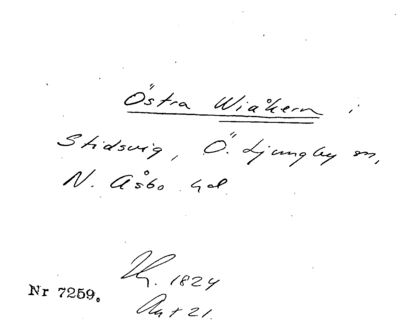 Östra Wiåkern i
Stidsvig, Ö. Ljungby sn,
N. Åsbo hd
1824
Nr 7259.
Akt 21.